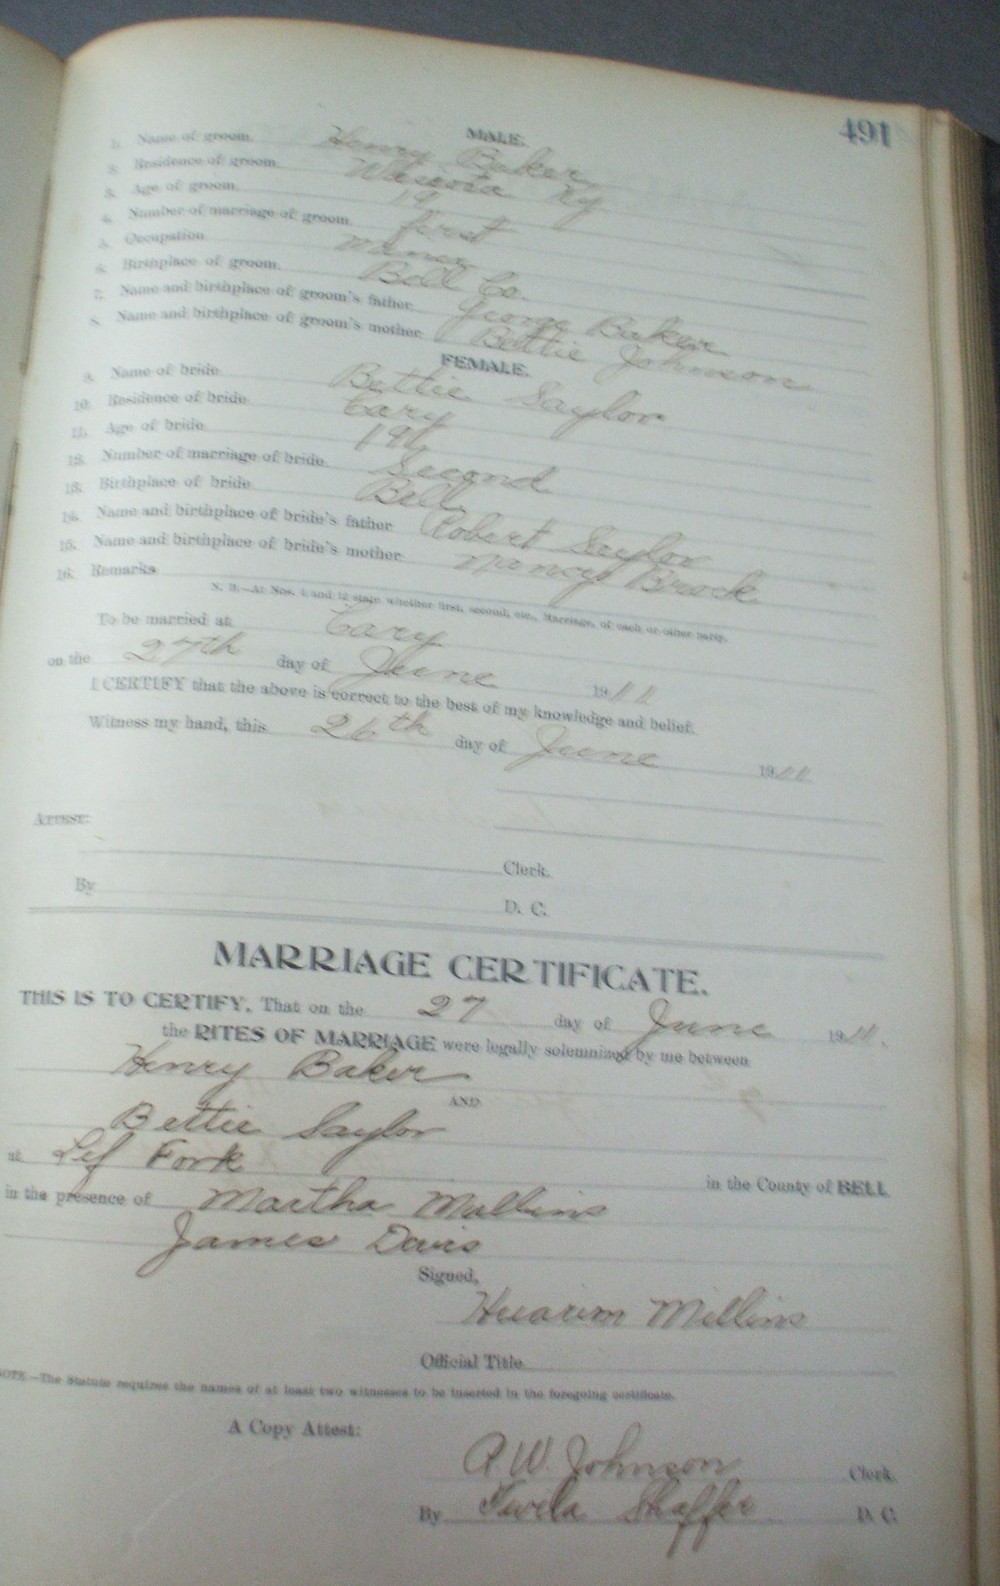 491
MALE.
1. Name of groom. Henry Baker
2. Residence of groom. Ky
3. Age of groom. 19
4. Number of marriage of groom. first
5. Occupation. miner
6. Birthplace of groom. Bell Co.
7. Name and birthplace of groom's father. George Baker
8. Name and birthplace of groom's mother. Bettie Johnson
FEMALE.
9. Name of bride. Bettie Saylor
10. Residence of bride. Cary
11. Age of bride.
12. Number of marriage of bride. Second
13. Birthplace of bride. Bell
14. Name and birthplace of bride's father. Robert Saylor
15. Name and birthplace of bride's mother. Nancy Brock
16. Remarks.
N. B.—At Nos. 4 and 12 state whether first, second, etc., Marriage, of each or other party.
To be married at Cary
on the 27th day of June 1911
I CERTIFY that the above is correct to the best of my knowledge and belief.
Witness my hand, this 26th day of June 1911
ATTEST:
Clerk.
By D. C.
MARRIAGE CERTIFICATE.
THIS IS TO CERTIFY, That on the 27 day of June 1911.
the RITES OF MARRIAGE were legally solemnized by me between
Henry Baker
AND
Bettie Saylor
at Lef Fork in the County of BELL
in the presence of Martha Mullins
James Davis
Signed,
Millins
Official Title
NOTE.—The Statute requires the names of at least two witnesses to be inserted in the foregoing certificate.
A Copy Attest:
R. W. Johnson Clerk.
By Twila Shaffer D. C.